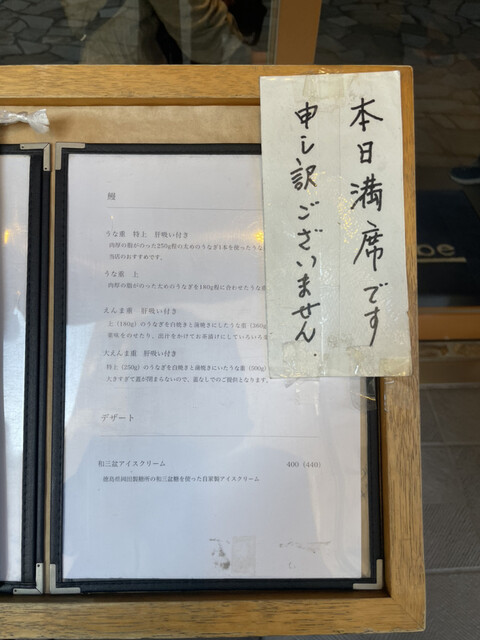 本日満席です
申し訳ございません.
鰻
うな重 特上 肝吸い付き
肉厚の脂がのった250g程の太めのうなぎ1本を使ったうな
当店のおすすめです。
うな重 上
肉厚の脂がのった太めのうなぎを180g程に合わせたうな重
えんま重 肝吸い付き
上(180g)のうなぎを白焼きと蒲焼きにしたうな重(360g
薬味をのせたり、出汁をかけてお茶漬けにしていろいろ
大えんま重 肝吸い付き
特上(250g)のうなぎを白焼きと蒲焼きにいたうな重(500g)
大きすぎて蓋が閉まらないので、蓋なしでのご提供となります。
デザート
和三盆アイスクリーム 400(440)
徳島県岡田製糖所の和三盆糖を使った自家製アイスクリーム
oe